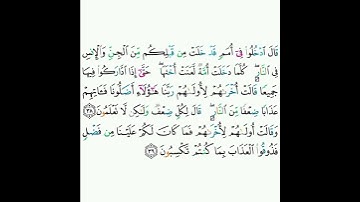 قَالَ ٱدۡخُلُواْ فِيٓ أُمَمٖ قَدۡ خَلَتۡ مِن قَبۡلِكُم مِّنَ ٱلۡجِنِّ وَٱلۡإِنسِ
فِي ٱلنَّارِۖ كُلَّمَا دَخَلَتۡ أُمَّةٞ لَّعَنَتۡ أُخۡتَهَاۖ حَتَّىٰٓ إِذَا ٱدَّارَكُواْ فِيهَا
جَمِيعٗا قَالَتۡ أُخۡرَىٰهُمۡ لِأُولَىٰهُمۡ رَبَّنَا هَٰٓؤُلَآءِ أَضَلُّونَا فَـَٔاتِهِمۡ
عَذَابٗا ضِعۡفٗا مِّنَ ٱلنَّارِۖ قَالَ لِكُلّٖ ضِعۡفٞ وَلَٰكِن لَّا تَعۡلَمُونَ ٣٨
وَقَالَتۡ أُولَىٰهُمۡ لِأُخۡرَىٰهُمۡ فَمَا كَانَ لَكُمۡ عَلَيۡنَا مِن فَضۡلٖ
فَذُوقُواْ ٱلۡعَذَابَ بِمَا كُنتُمۡ تَكۡسِبُونَ ٣٩